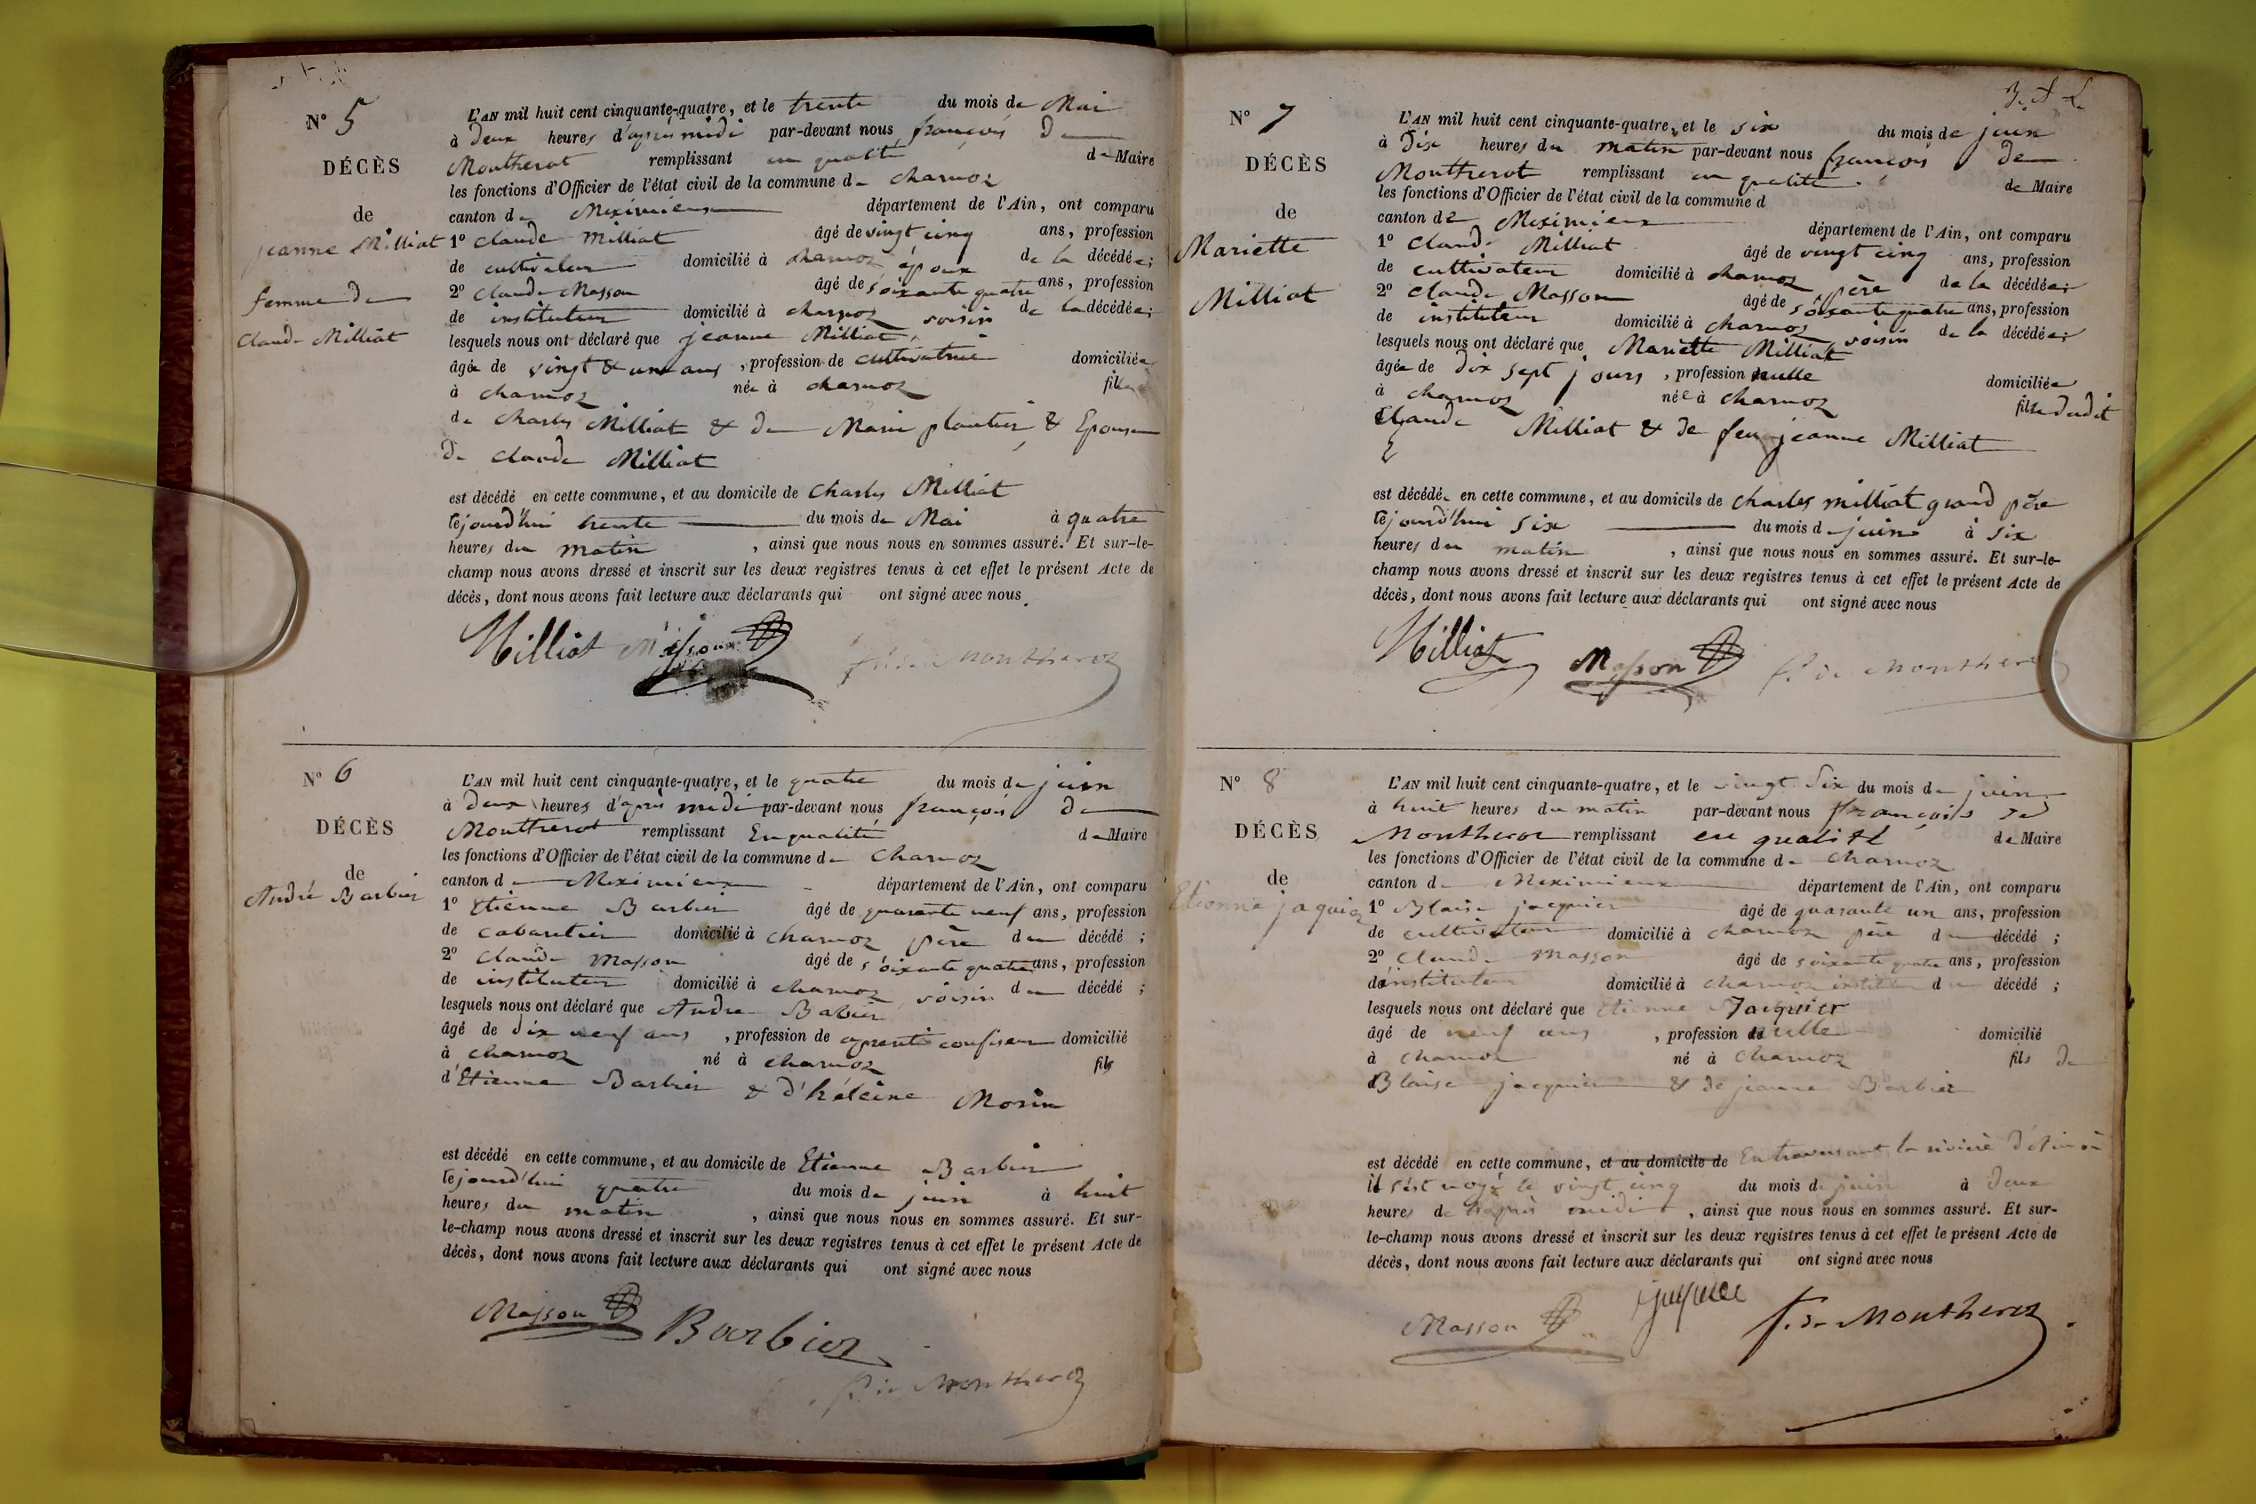 N° 5
DÉCÈS
de
jeanne Milliat
femme de
Claude Milliat
L'AN mil huit cent cinquante-quatre, et le trente du mois de Mai
à deux heures d'après midi par-devant nous françois De
Montherot remplissant en qualité de Maire
les fonctions d'Officier de l'état civil de la commune de charnoz
canton de Meximieux département de l'Ain, ont comparu
1° claude Milliat âgé de vingt cinq ans, profession
de cultivateur domicilié à charnoz époux de la décédée;
2° Claude Masson âgé de soixante quatre ans, profession
de instituteur domicilié à charnoz voisin de la décédée;
lesquels nous ont déclaré que jeanne Milliat,
âgée de vingt & un ans, profession de cultivatrice domiciliée
à charnoz née à charnoz fille
de Charles Milliat & de Marie plantier & Epouse
De claude Milliat
est décédé en cette commune, et au domicile de Charles Milliat
cejourd'hui trente du mois de Mai à quatre
heures du matin, ainsi que nous nous en sommes assuré. Et sur-le-
champ nous avons dressé et inscrit sur les deux registres tenus à cet effet le présent Acte de
décès, dont nous avons fait lecture aux déclarants qui ont signé avec nous.
Milliat Masson f. de Montherot
N° 6
DÉCÈS
de
André Barbier
L'AN mil huit cent cinquante-quatre, et le quatre du mois de juin
à deux heures d'après midi par-devant nous françois De
Montherot remplissant En qualité de Maire
les fonctions d'Officier de l'état civil de la commune de Charnoz
canton de Meximieux département de l'Ain, ont comparu
1° Etienne Barbier âgé de quarante neuf ans, profession
de cabaretier domicilié à charnoz père du décédé;
2° Claude Masson âgé de soixante quatre ans, profession
de instituteur domicilié à charnoz voisin du décédé;
lesquels nous ont déclaré que Andre Babier
âgé de dix neuf ans, profession de aprenti confiseur domicilié
à charnoz né à charnoz fils
d'Etienne Barbier & d'héleine Morin
est décédé en cette commune, et au domicile de Etienne Barbier
cejourd'hui quatre du mois de juin à huit
heures du matin, ainsi que nous nous en sommes assuré. Et sur-
le-champ nous avons dressé et inscrit sur les deux registres tenus à cet effet le présent Acte de
décès, dont nous avons fait lecture aux déclarants qui ont signé avec nous
Masson Barbier
f. de Montherot
N° 7
DÉCÈS
de
Mariette
Milliat
L'AN mil huit cent cinquante-quatre, et le six du mois de juin
à Dix heures du matin par-devant nous françois de
Montherot remplissant en qualité de Maire
les fonctions d'Officier de l'état civil de la commune d
canton de Meximieux département de l'Ain, ont comparu
1° Claude Milliat âgé de vingt cinq ans, profession
de cultivateur domicilié à charnoz père de la décédée;
2° Claude Masson âgé de soixante quatre ans, profession
de instituteur domicilié à charnoz, voisin de la décédée;
lesquels nous ont déclaré que Mariette Milliat
âgée de dix sept jours, profession nulle domiciliée
à charnoz née à charnoz fille dudit
Claude Milliat & de feu jeanne Milliat
est décédée en cette commune, et au domicile de Charles milliat grand père
cejourd'hui six du mois de juin à six
heures du matin, ainsi que nous nous en sommes assuré. Et sur-le-
champ nous avons dressé et inscrit sur les deux registres tenus à cet effet le présent Acte de
décès, dont nous avons fait lecture aux déclarants qui ont signé avec nous
Milliat Masson f. de Montherot
N° 8
DÉCÈS
de
Etienne jaquier
L'AN mil huit cent cinquante-quatre, et le vingt Six du mois de juin
à huit heures du matin par-devant nous françois de
Montherot remplissant en qualité de Maire
les fonctions d'Officier de l'état civil de la commune de charnoz
canton de Meximieux département de l'Ain, ont comparu
1° Blaise jacquier âgé de quarante un ans, profession
de cultivateur domicilié à charnoz père du décédé;
2° Claude Masson âgé de soixante quatre ans, profession
d'instituteur domicilié à charnoz du décédé;
lesquels nous ont déclaré que Etienne Jacquier
âgé de neuf ans, profession nulle domicilié
à charnoz né à Charnoz fils de
Blaise jacquier & de jeanne Barbier
est décédé en cette commune, et au domicile de En traversant la rivière d'Ain où
il s'est noyé le vingt cinq du mois de juin à Deux
heures d'après midi, ainsi que nous nous en sommes assuré. Et sur-
le-champ nous avons dressé et inscrit sur les deux registres tenus à cet effet le présent Acte de
décès, dont nous avons fait lecture aux déclarants qui ont signé avec nous
Masson f. de Montherot